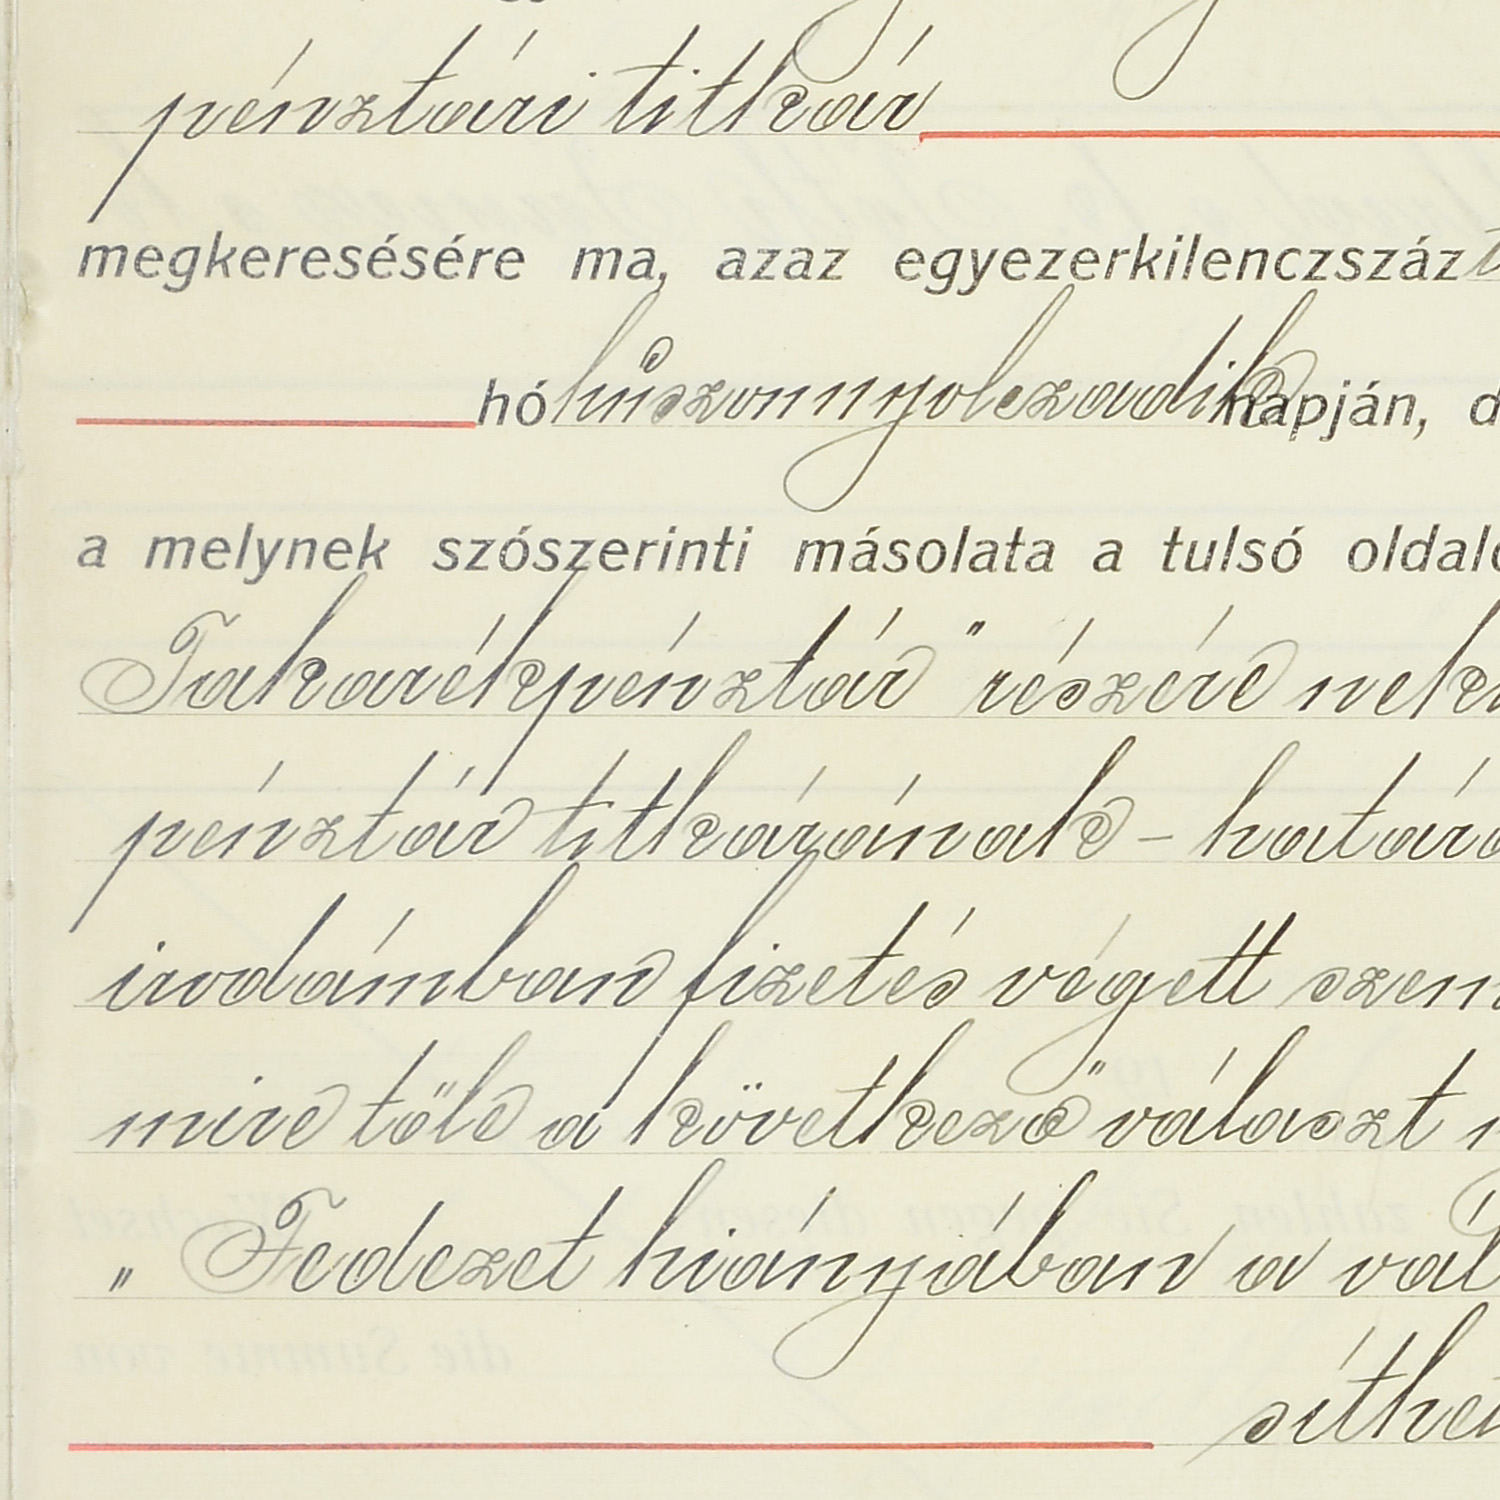 pénztári titkár
megkeresésére ma, azaz egyezerkilenczszáz
hó húszonnyolczadik napján, d
a melynek szószerinti másolata a tulsó oldal
Takarékpénztár" részére nek
pénztár titkárának – határ
irodámban fizetés végett szem
mire tőle a következő választ
„Fedezet hiányában a vál
síthet